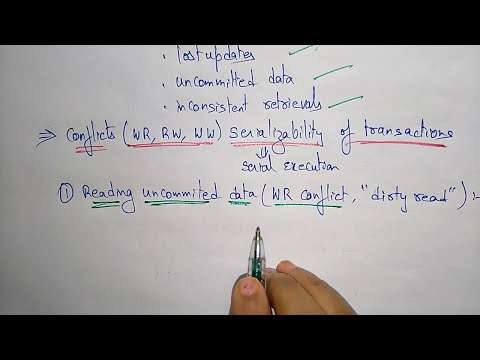 · lost updates ✓
· uncommitted data ✓
· inconsistent retrievals ✓
⇒ Conflicts (WR, RW, WW) Serializability of transactions
⇓
serial execution
① Reading uncommited data (WR conflict, "dirty read") :-